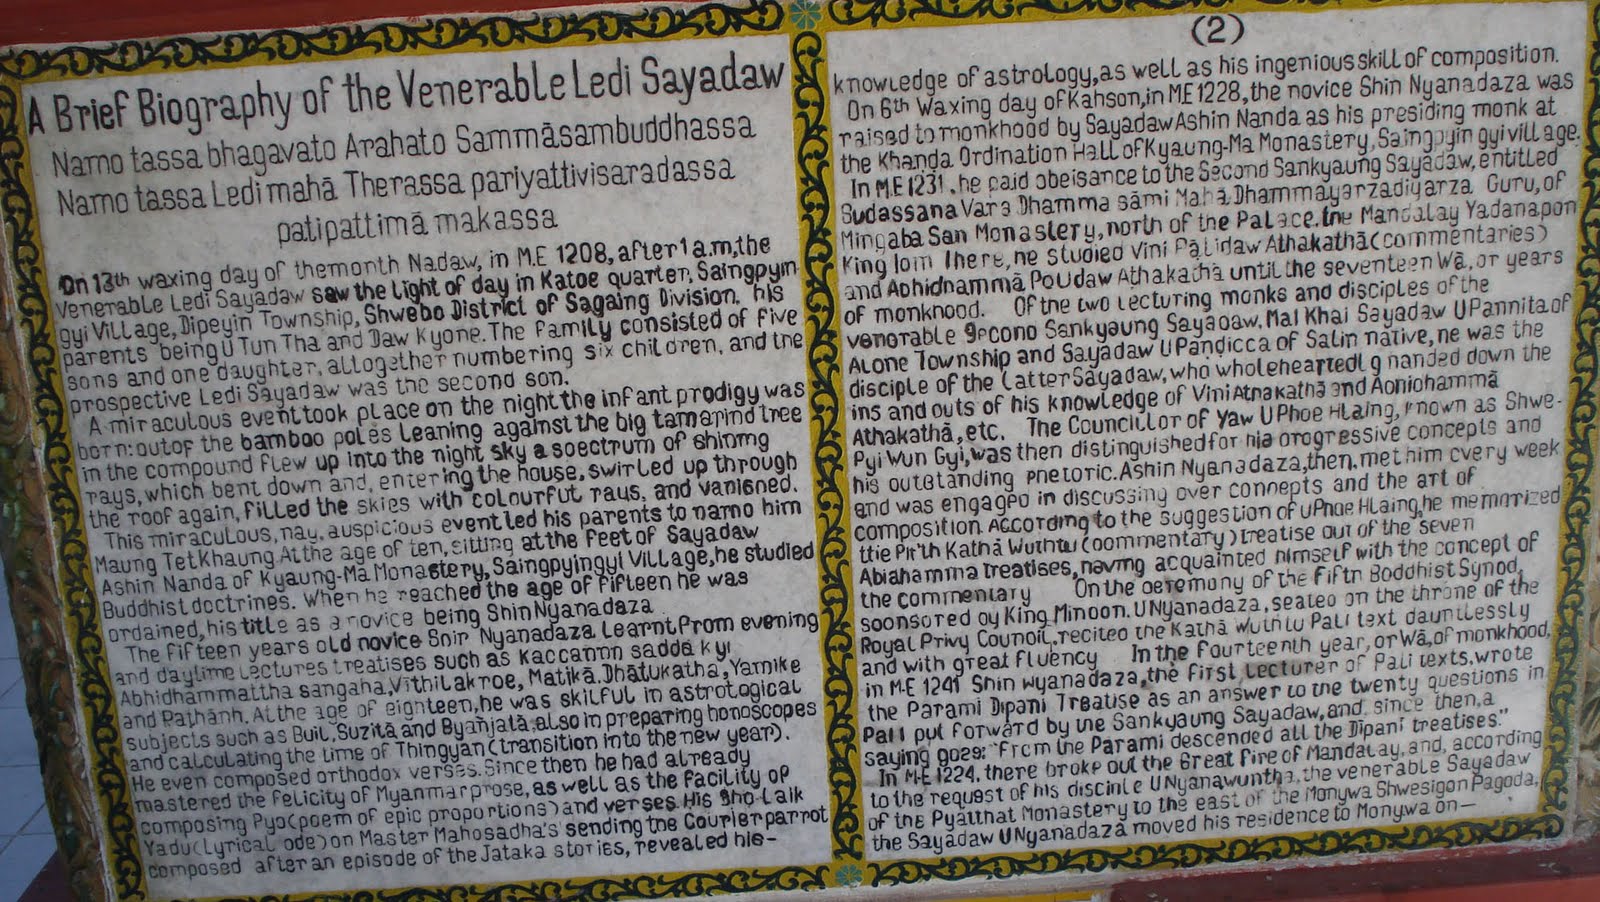 A Brief Biography of the Venerable Ledi Sayadaw
Namo tassa bhagavato Arahato Sammāsambuddhassa
Namo tassa Ledi mahā Therassa pariyattivisaradassa
patipattimā makassa
On 13th waxing day of themonth Nadaw, in M.E 1208, after 1 a.m, the
Venerable Ledi Sayadaw saw the light of day in Katoe quarter, Saingpyin-
gyi Village, Dipeyin Township, Shwebo District of Sagaing Division. his
parents being U Tun Tha and Daw Kyone. The family consisted of five
sons and one daughter, alltogether numbering six children, and the
prospective Ledi Sayadaw was the second son.
A miraculous event took place on the night the infant prodigy was
born: out of the bamboo poles leaning against the big tamarind tree
in the compound flew up into the night sky a spectrum of shining
rays, which bent down and, entering the house, swirled up through
the roof again, filled the skies with colourful rays, and vanished.
This miraculous, nay, auspicious event led his parents to name him
Maung Tet Khaung. At the age of ten, sitting at the feet of Sayadaw
Ashin Nanda of Kyaung-Ma Monastery, Saingpyingyi Village, he studied
Buddhist doctrines. When he reached the age of fifteen he was
ordained, his title as a novice being Shin Nyanadaza
The fifteen years old novice Shin Nyanadaza Learnt from evening
and daytime lectures treatises such as Kaccannn saddā kyi,
Abhidhammattha sangaha, Vithilakroe, Matikā, Dhātukatha, Yamike
and Paṭhānh. At the age of eighteen, he was skilful in astrological
subjects such as Buil, Suzitā and Byañjatā, also in preparing horoscopes
and calculating the time of Thingyan (transition into the new year).
He even composed orthodox verses. Since then he had already
mastered the felicity of Myanmar prose, as well as the facility of
composing Pyo (poem of epic proportions) and verses. His Sho-Laik
Yadu (Lyrical ode) on Master Mahosadha's sending the Courier parrot
composed after an episode of the Jataka stories, revealed his—
(2)
knowledge of astrology, as well as his ingenious skill of composition.
On 6th Waxing day of Kahson, in M.E 1228, the novice Shin Nyanadaza was
raised to monkhood by Sayadaw Ashin Nanda as his presiding monk at
the Khanda Ordination Hall of Kyaung-Ma Monastery, Saingpyin gyi village.
In M.E 1231, he paid obeisance to the Second Sankyaung Sayadaw, entitled
Sudassana Vara Dhamma sāmi Mahā Dhammāyarzadiyarza Guru, of
Mingaba San Monastery, north of the Palace, the Mandalay Yadanapon
King lom There, he studied Vini Pālidaw Athakathā (commentaries)
and Abhidhammā Poudaw Athakathā until the seventeen Wā, or years
of monkhood. Of the two lecturing monks and disciples of the
venerable Second Sankyaung Sayadaw, Mal Khai Sayadaw U Pannita of
Alone Township and Sayadaw U Paṇdicca of Salin native, he was the
disciple of the Latter Sayadaw, who wholeheartedly handed down the
ins and outs of his knowledge of Vini Athakathā and Abhidhammā
Athakathā, etc. The Councillor of Yaw U Phoe Hlaing, known as Shwe-
Pyi Wun Gyi, was then distinguished for his progressive concepts and
his outstanding rhetoric. Ashin Nyanadaza, then, met him every week
and was engaged in discussing over concepts and the art of
composition. According to the suggestion of U Phoe Hlaing, he memorized
the Kathā Wuthtu (commentary) treatise out of the seven
Abidhamma treatises, having acquainted himself with the concept of
the commentary On the ceremony of the Fifth Boddhist Synod,
soonsored by King Mindon, U Nyanadaza, seated on the throne of the
Royal Privy Council, recited the Kathā Wuthtu Pali text dauntlessly
and with great fluency In the fourteenth year, or Wā, of monkhood,
in M.E 1241 Shin Nyanadaza, the first Lecturer of Pali texts, wrote
the Parami Dīpani Treatise as an answer to the twenty questions in
Pali put forward by the Sankyaung Sayadaw, and, since then, a
saying goes: "From the Parami descended all the Dīpani treatises."
In M.E 1224, there broke out the Great Fire of Mandalay, and, according
to the request of his disciple U Nyanawuntha, the venerable Sayadaw
of the Pyatthat Monastery to the east of the Monywa Shwesigon Pagoda,
the Sayadaw U Nyanadaza moved his residence to Monywa on—